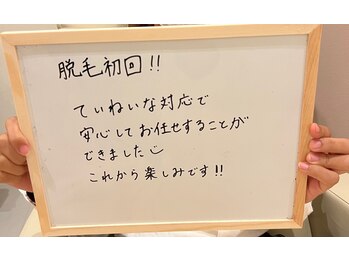 脱毛初回!!
ていねいな対応で
安心してお任せすることが
できました
これから楽しみです!!